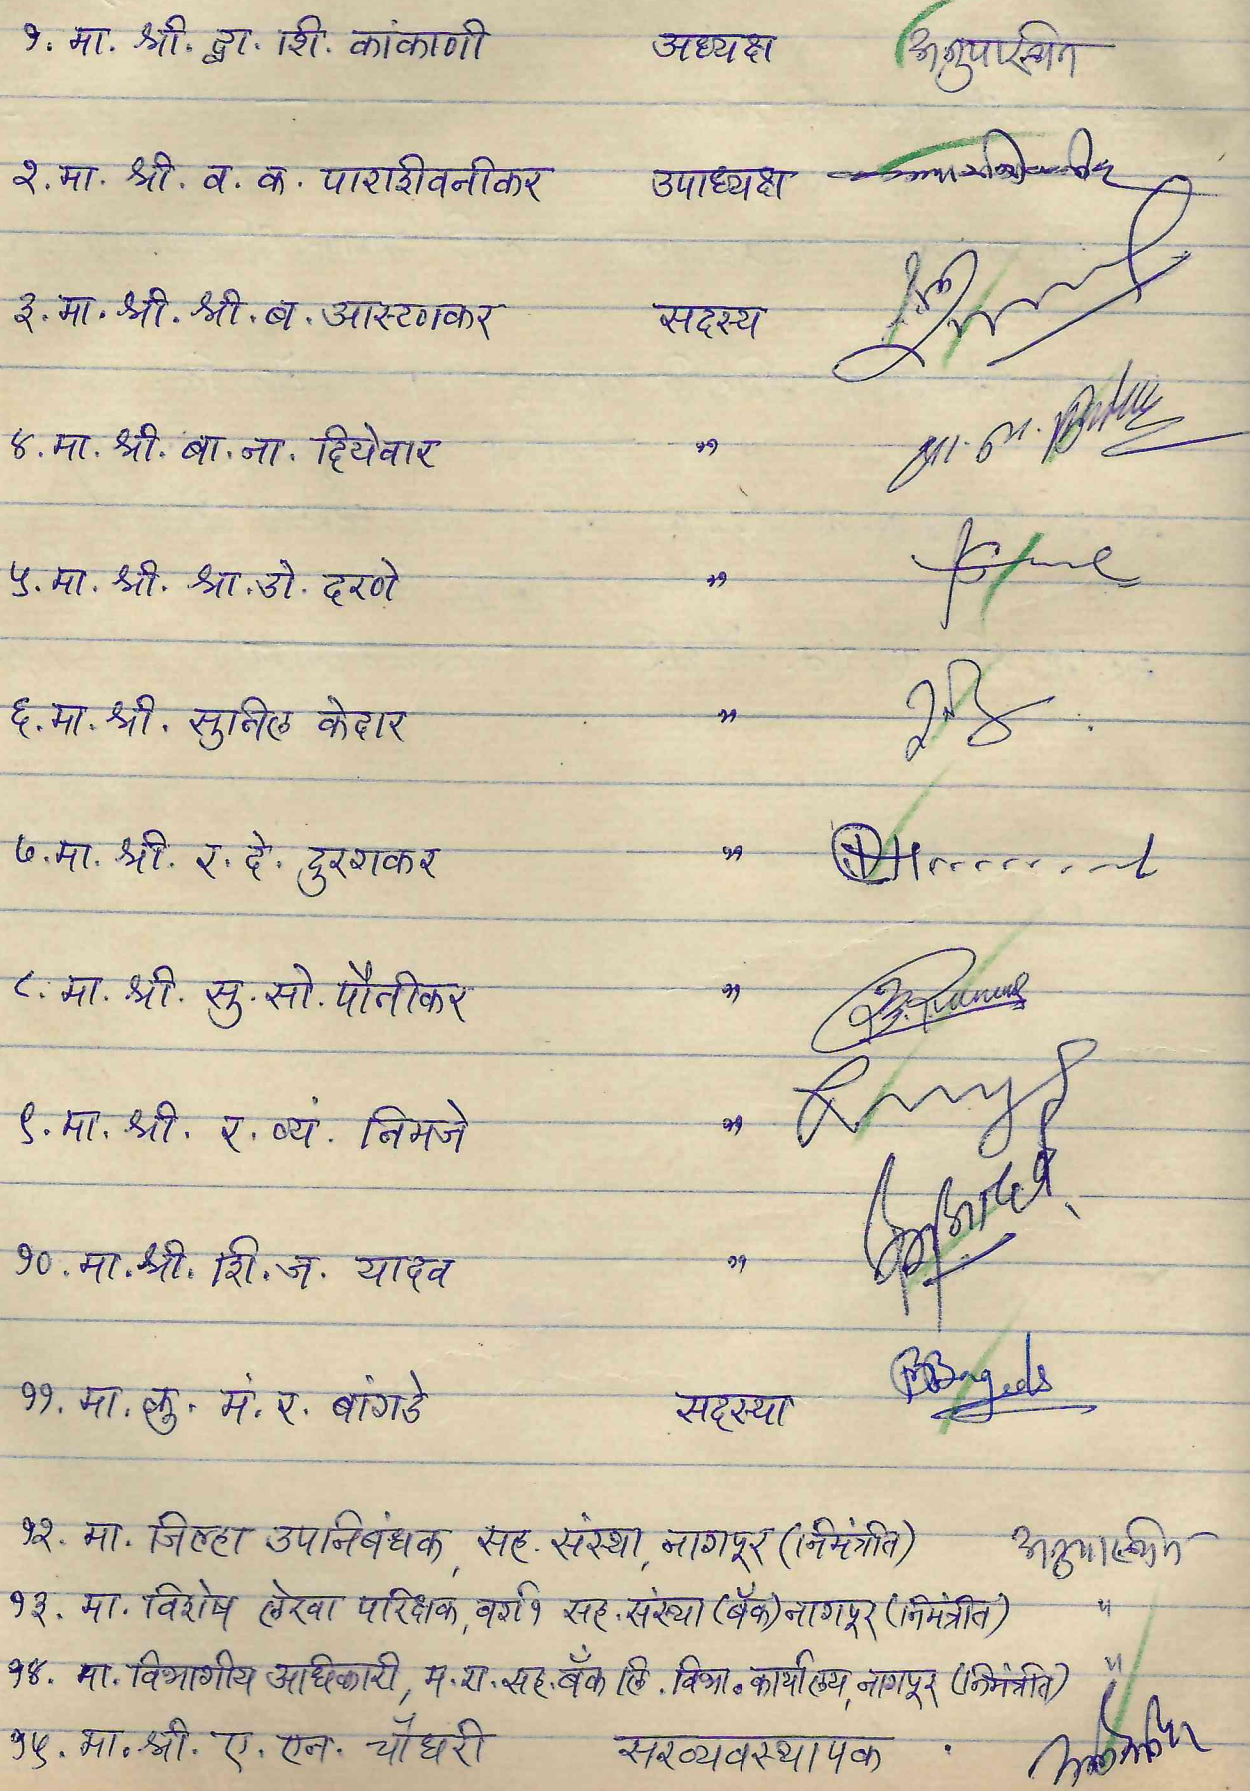 १. मा. श्री. द्वा. शि. कांकाणी अध्यक्ष अनुपास्थित
२. मा. श्री. व. क. पाराशीवनीकर उपाध्यक्ष
३. मा. श्री. श्री. ब. आस्टणकर सदस्य
४. मा. श्री. बा. ना. दियेवार "
५. मा. श्री. श्रा. डो. दरणे "
६. मा. श्री. सुनिल केदार "
७. मा. श्री. र. दे. दुरुगकर "
८. मा. श्री. सु. सो. पौनीकर "
९. मा. श्री. र. व्यं. निमजे "
१०. मा. श्री. शि. ज. यादव "
११. मा. कु. मं. र. बांगडे सदस्या
१२. मा. जिल्हा उपनिबंधक, सह. संस्था, नागपूर (निमंत्रीत) अनुपास्थित
१३. मा. विशेष लेखा परिक्षक, वर्ग १ सह. संस्था (बॅंक) नागपूर (निमंत्रीत) "
१४. मा. विभागीय अधिकारी, म. रा. सह. बॅंक लि. विभा. कार्यालय, नागपूर (निमंत्रीत) "
१५. मा. श्री. ए. एन. चौधरी सरव्यवस्थापक